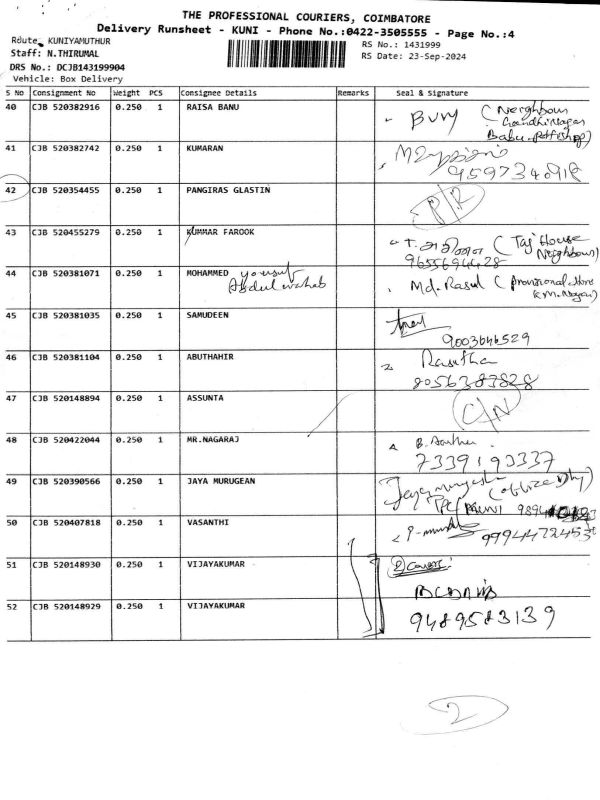 THE PROFESSIONAL COURIERS, COIMBATORE
Delivery Runsheet - KUNI - Phone No.:0422-3505555 - Page No.:4
Route: KUNIYAMUTHUR
RS No.: 1431999
Staff: N.THIRUMAL
RS Date: 23-Sep-2024
DRS No.: DCJB143199904
Vehicle: Box Delivery
S No Consignment No Weight PCS Consignee Details Remarks Seal & Signature
40 CJB 520382916 0.250 1 RAISA BANU (Neighbour
Gandhi Nagar
41 CJB 520382742 0.250 1 KUMARAN
9597340918
42 CJB 520354455 0.250 1 PANGIRAS GLASTIN
43 CJB 520455279 0.250 1 KUMMAR FAROOK (Taj House
9655694428 Neighbour)
44 CJB 520381071 0.250 1 MOHAMMED yousuf Md. Rasul (provisional store
Abdul wahab K.M. Nagar)
45 CJB 520381035 0.250 1 SAMUDEEN
9003646529
46 CJB 520381104 0.250 1 ABUTHAHIR Rasutha
8056383828
47 CJB 520148894 0.250 1 ASSUNTA C/N
48 CJB 520422044 0.250 1 MR.NAGARAJ
7339193337
49 CJB 520390566 0.250 1 JAYA MURUGEAN
50 CJB 520407818 0.250 1 VASANTHI
9994472453
51 CJB 520148930 0.250 1 VIJAYAKUMAR
52 CJB 520148929 0.250 1 VIJAYAKUMAR 9489583139
2